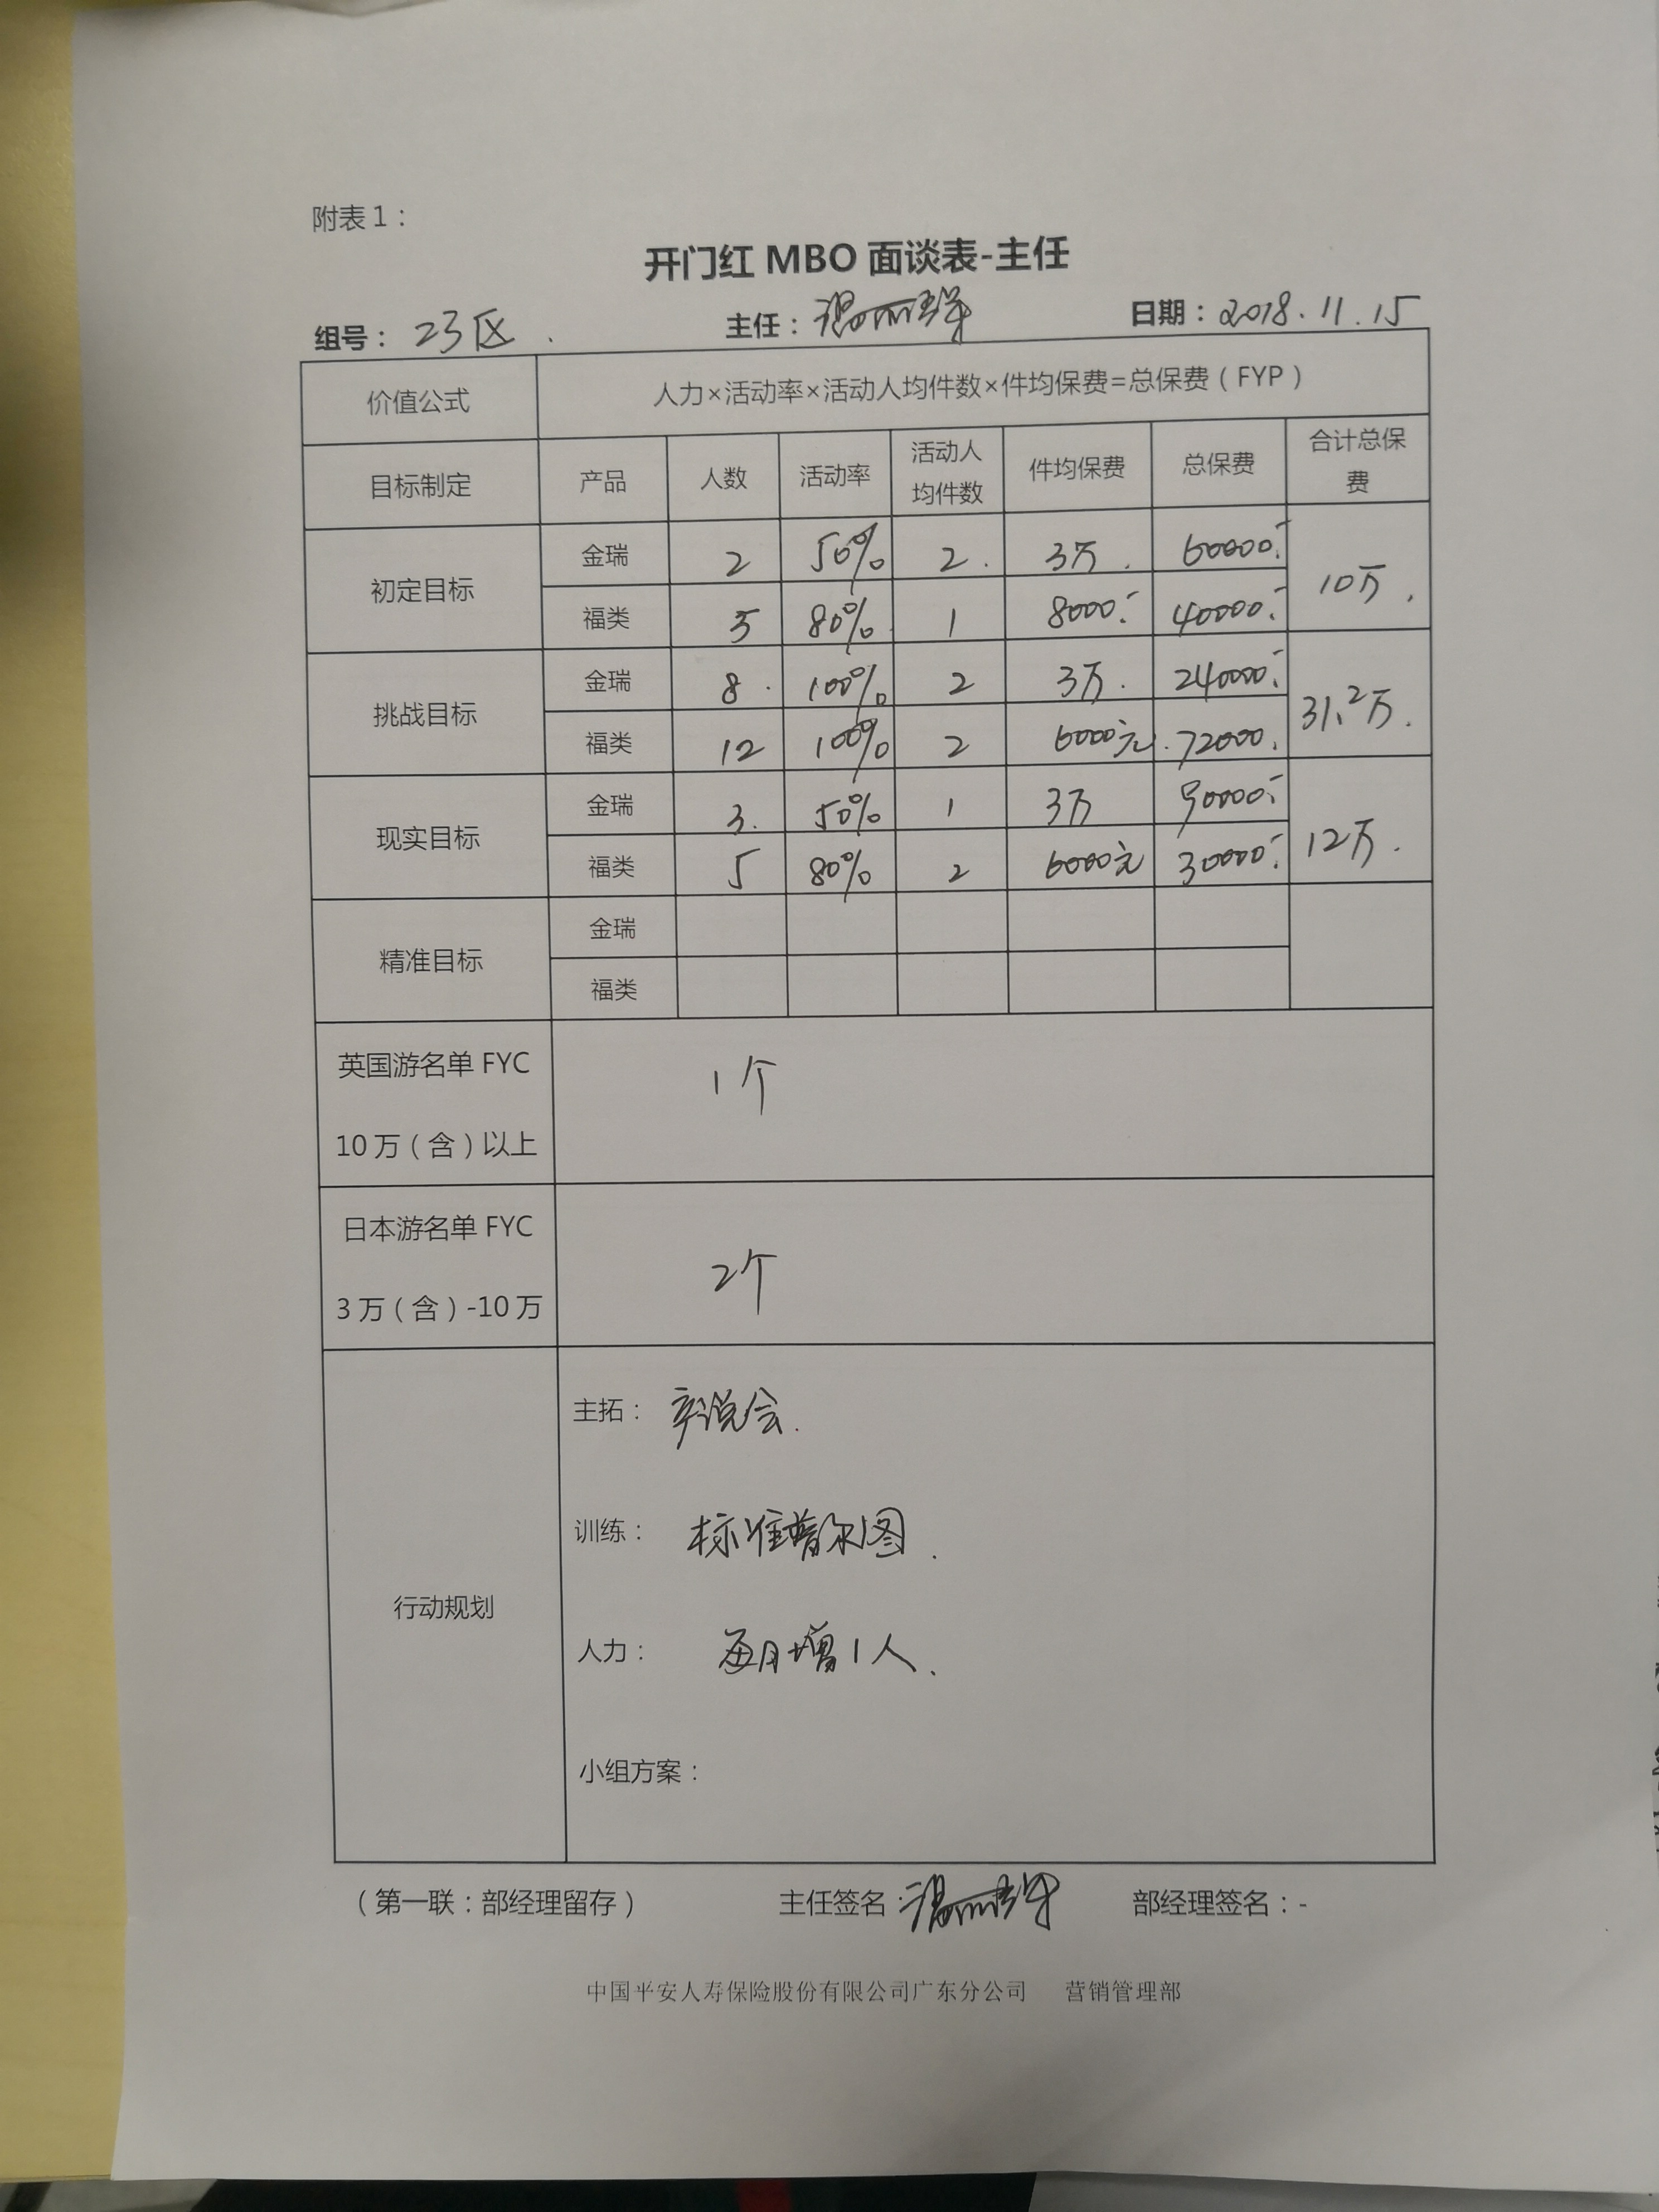 附表1：
开门红 MBO 面谈表-主任
组号： 23区. 主任： 日期：2018.11.15
价值公式 人力×活动率×活动人均件数×件均保费=总保费（FYP）
目标制定 产品 人数 活动率 活动人均件数 件均保费 总保费 合计总保费
初定目标 金瑞 2 50% 2. 3万. 60000.- 10万.
福类 5 80% 1 8000.- 40000.-
挑战目标 金瑞 8. 100% 2 3万. 240000.- 31.2万.
福类 12 100% 2 6000元. 72000.
现实目标 金瑞 3. 50% 1 3万 90000.- 12万.
福类 5 80% 2 6000元 30000.-
精准目标 金瑞
福类
英国游名单 FYC 1个
10万（含）以上
日本游名单 FYC 2个
3万（含）-10万
行动规划
主拓： 说会.
训练： 标准普尔图.
人力： 每月增1人.
小组方案：
（第一联：部经理留存） 主任签名： 部经理签名：-
中国平安人寿保险股份有限公司广东分公司 营销管理部